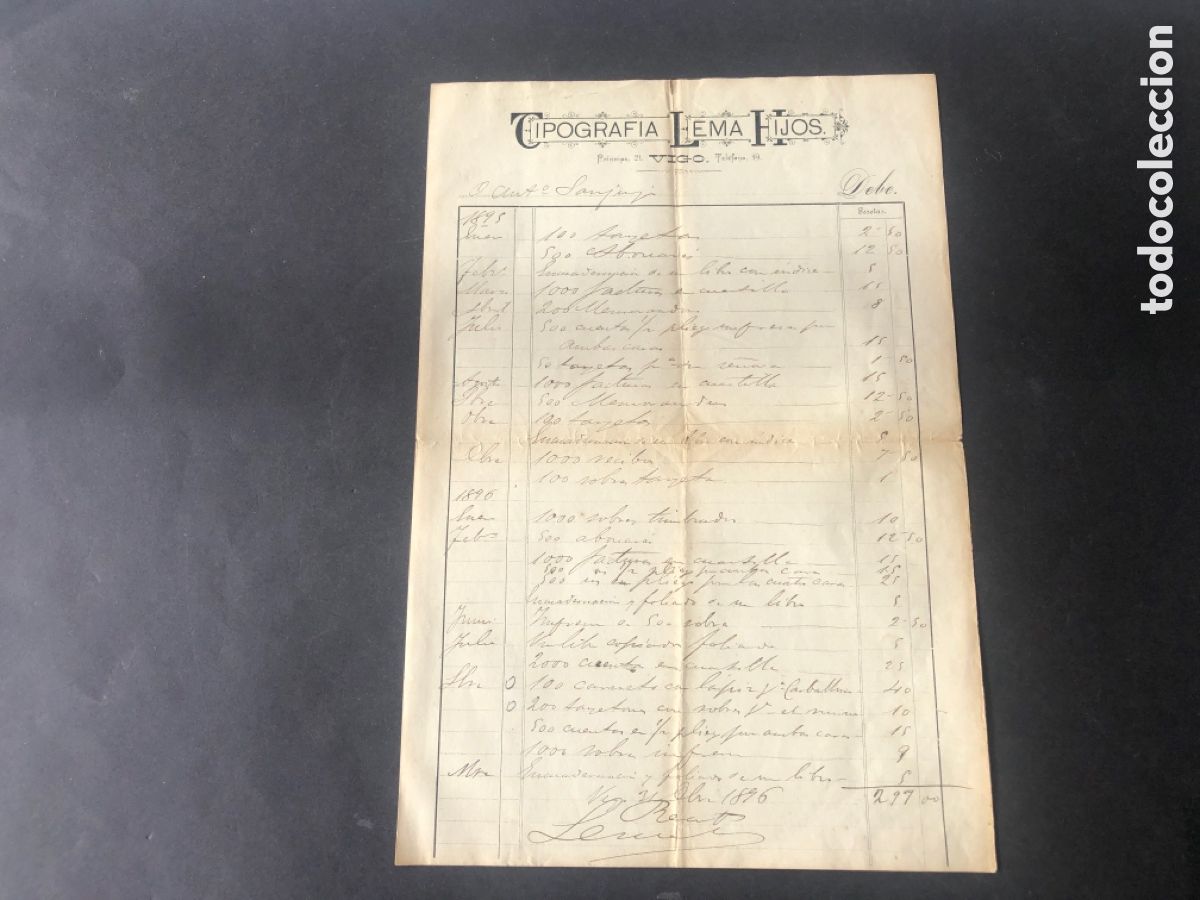 TIPOGRAFIA LEMA HIJOS.
Principe, 21. VIGO. Teléfono, 19.
D Antº Debe.
Pesetas.
1895
Ener 100 tarjetas 2-50
500 Abonarés 12 50
Febr. Encuadernación de un libro con índice 5
Marz 1000 facturas en cuartilla 15
Abril 200 Memorandus 8
Julio 500 cuentas 1/2 pliego impresas por
ambas caras 15
50 tarjetas pª su señora 1-50
Agosto 1000 facturas en cuartilla 15
7bre 500 Memorandus 12-50
8bre 100 tarjetas 2-50
Encuadernación de un libro con índice 5
Dbre 1000 recibos 7 50
100 sobres tarjeta 1
1896
Ener 1000 sobres timbrados 10
Febº 500 abonarés 12-50
1000 facturas en cuartilla 15
500 1/2 pliego cara 15
500 en pliego por las cuatro caras 25
Encuadernación y foliado de un libro 5
Junio Impresión de 500 sobres 2-50
Julio Un libro copiador foliado 5
2000 cuentas en cuartilla 25
0 100 carnets con lápiz pª Carballino 40
0 200 tarjetones con sobres pª el mismo 10
500 cuentas en 1/2 pliego por ambas caras 15
1000 sobres 9
Encuadernación y foliado de un libro 5
Vigo 31 Dbre 1896 297 00
Recibí
Lema
todocoleccion